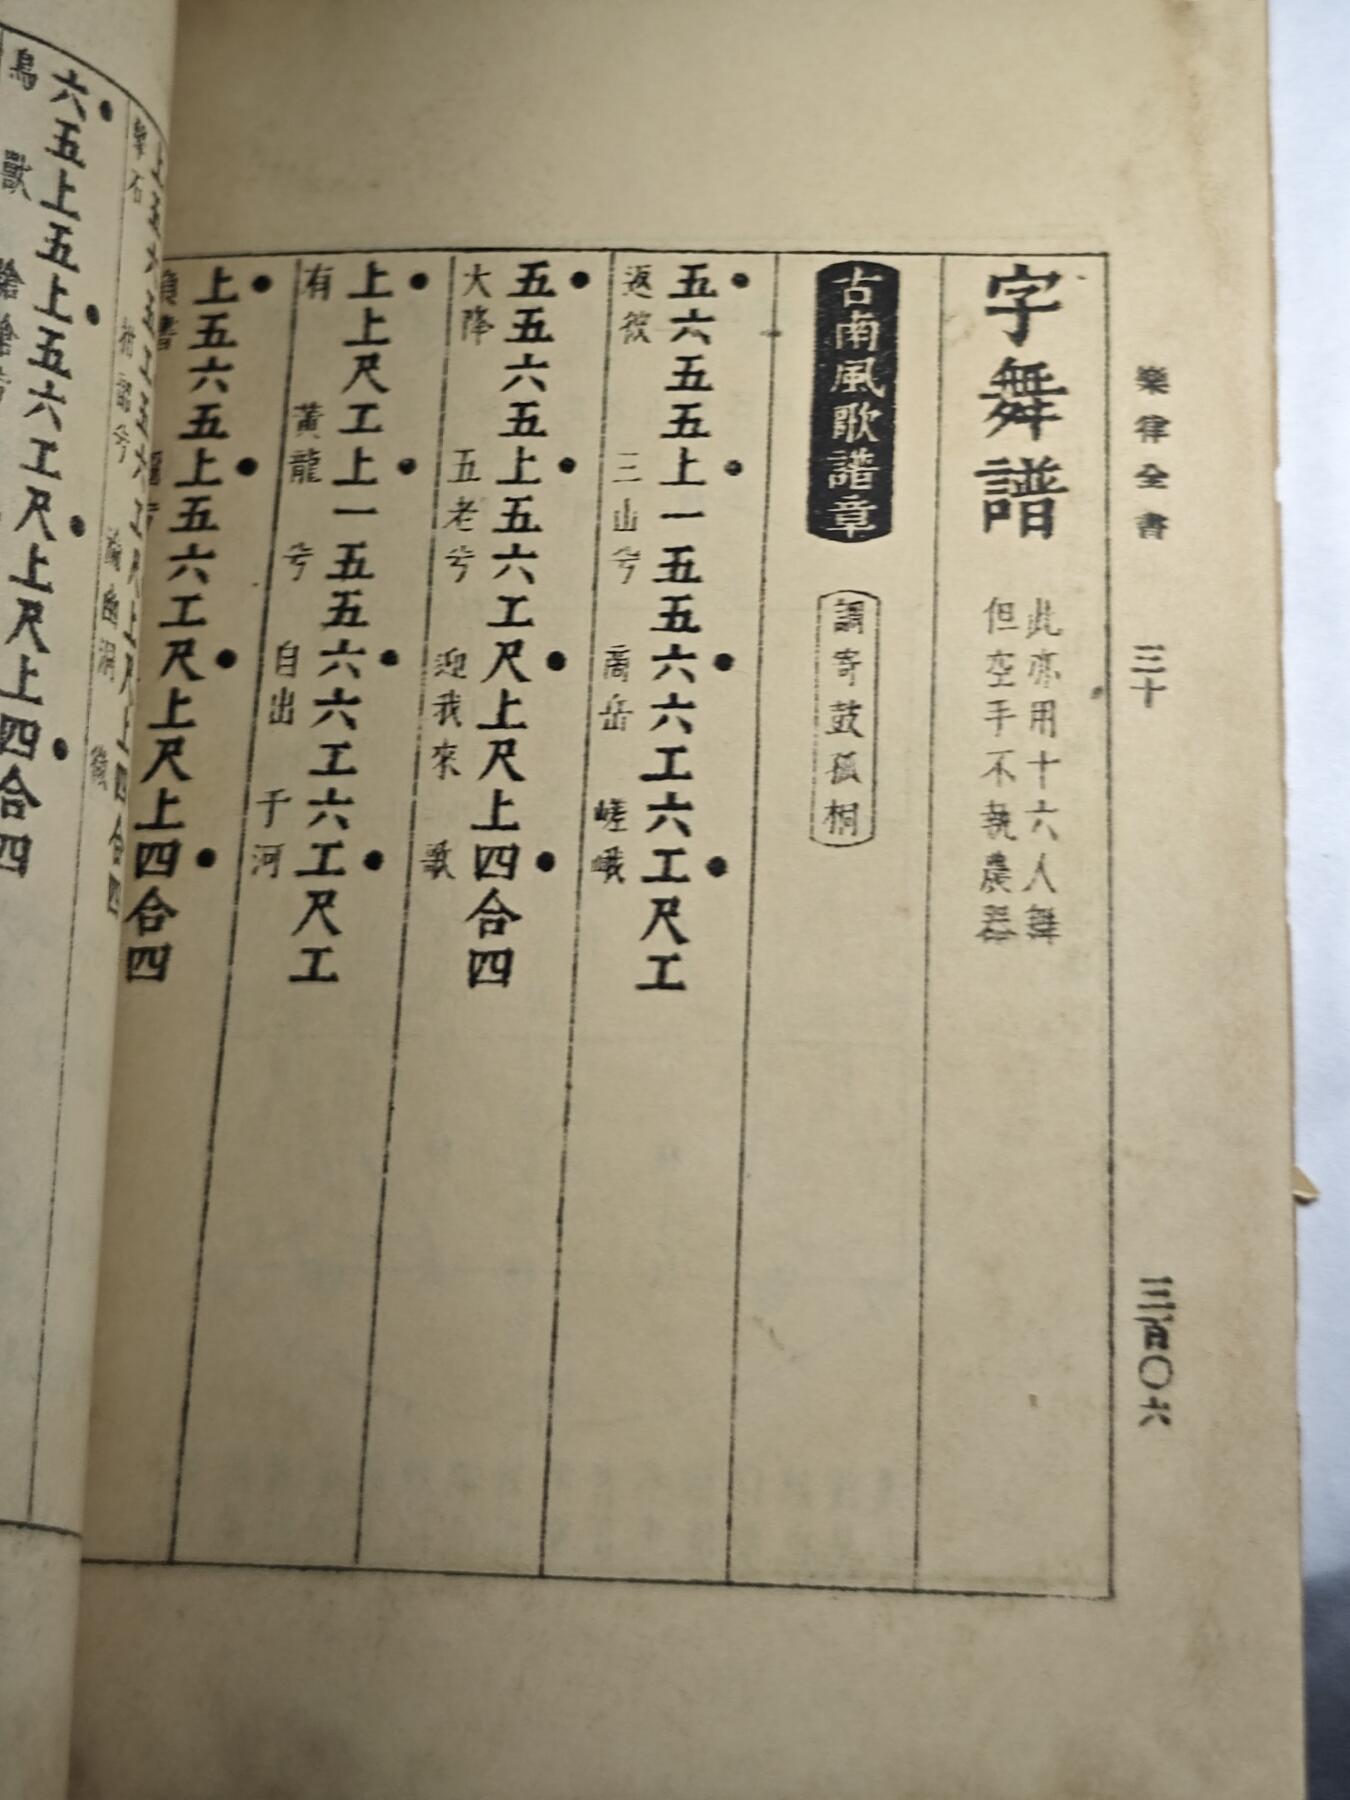 樂律全書 三十 三百〇六
字舞譜
此亦用十六人舞
但空手不執農器
古南風歌譜章
調寄鼓孤桐
五六五五上一五五六六工六工尺工
返彼三山兮商岳嵯峨
五五六五上五六工尺上尺上四合四
大降五老兮迎我來歌
上上尺工上一五五六六工六工尺工
有黃龍兮自出于河
上五六五上五六工尺上尺上四合四
書
六五上五上五六工尺上尺上四合四
鳥獸